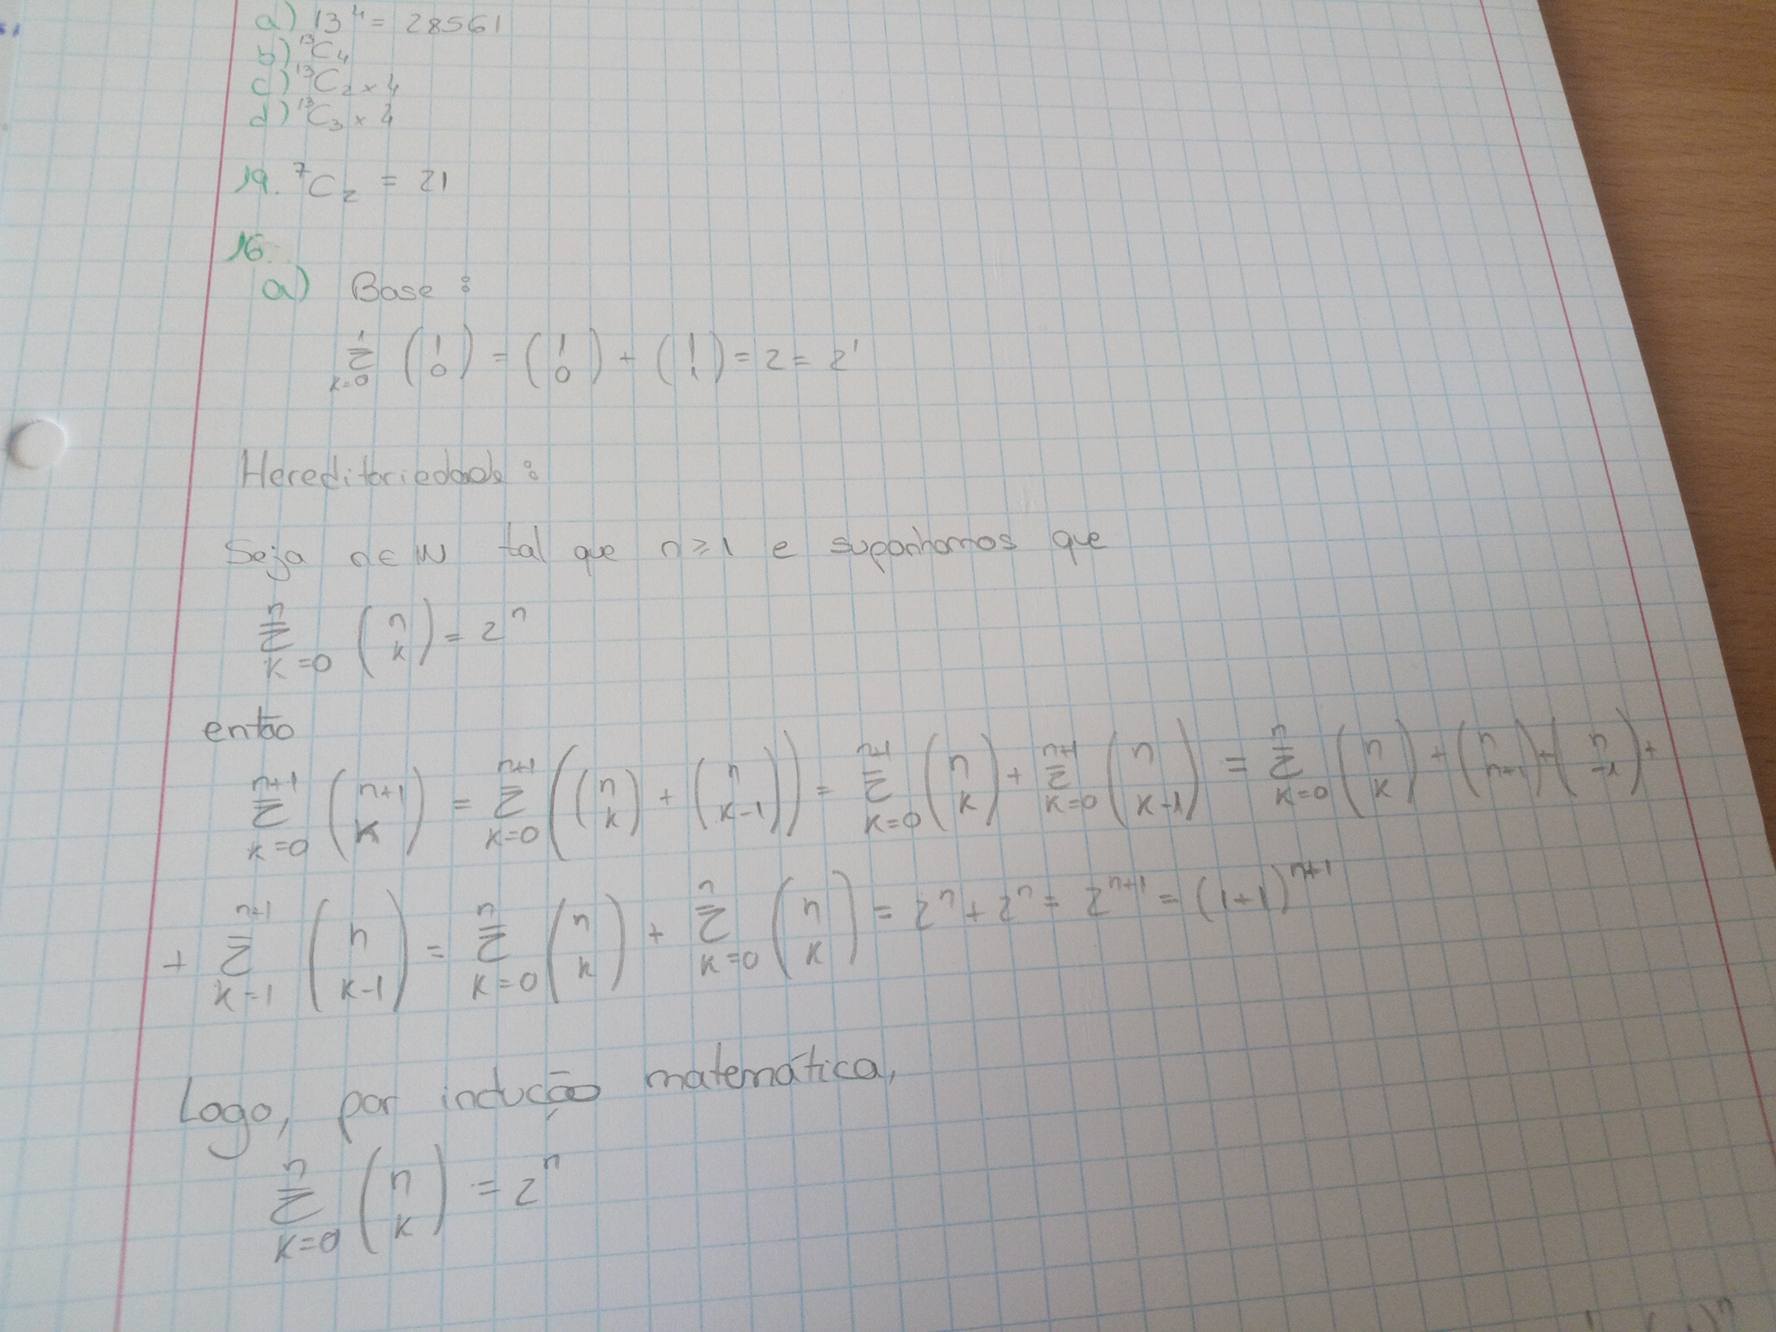 a) 13⁴ = 28561
b) ¹³C₄
c) ¹³C₂ × 4
d) ¹³C₃ × 4
19. ⁷C₂ = 21
16.
a) Base:
∑_{k=0}^{1} (1 0) = (1 0) + (1 1) = 2 = 2¹
Hereditariedade:
Seja n ∈ ℕ tal que n ≥ 1 e suponhamos que
∑_{k=0}^{n} (n k) = 2ⁿ
então
∑_{k=0}^{n+1} (n+1 k) = ∑_{k=0}^{n+1} ((n k) + (n k-1)) = ∑_{k=0}^{n+1} (n k) + ∑_{k=0}^{n+1} (n k-1) = ∑_{k=0}^{n} (n k) + (n n+1) + (n -1) +
+ ∑_{k=1}^{n+1} (n k-1) = ∑_{k=0}^{n} (n k) + ∑_{k=0}^{n} (n k) = 2ⁿ + 2ⁿ = 2ⁿ⁺¹ = (1+1)ⁿ⁺¹
Logo, por indução matemática,
∑_{k=0}^{n} (n k) = 2ⁿ